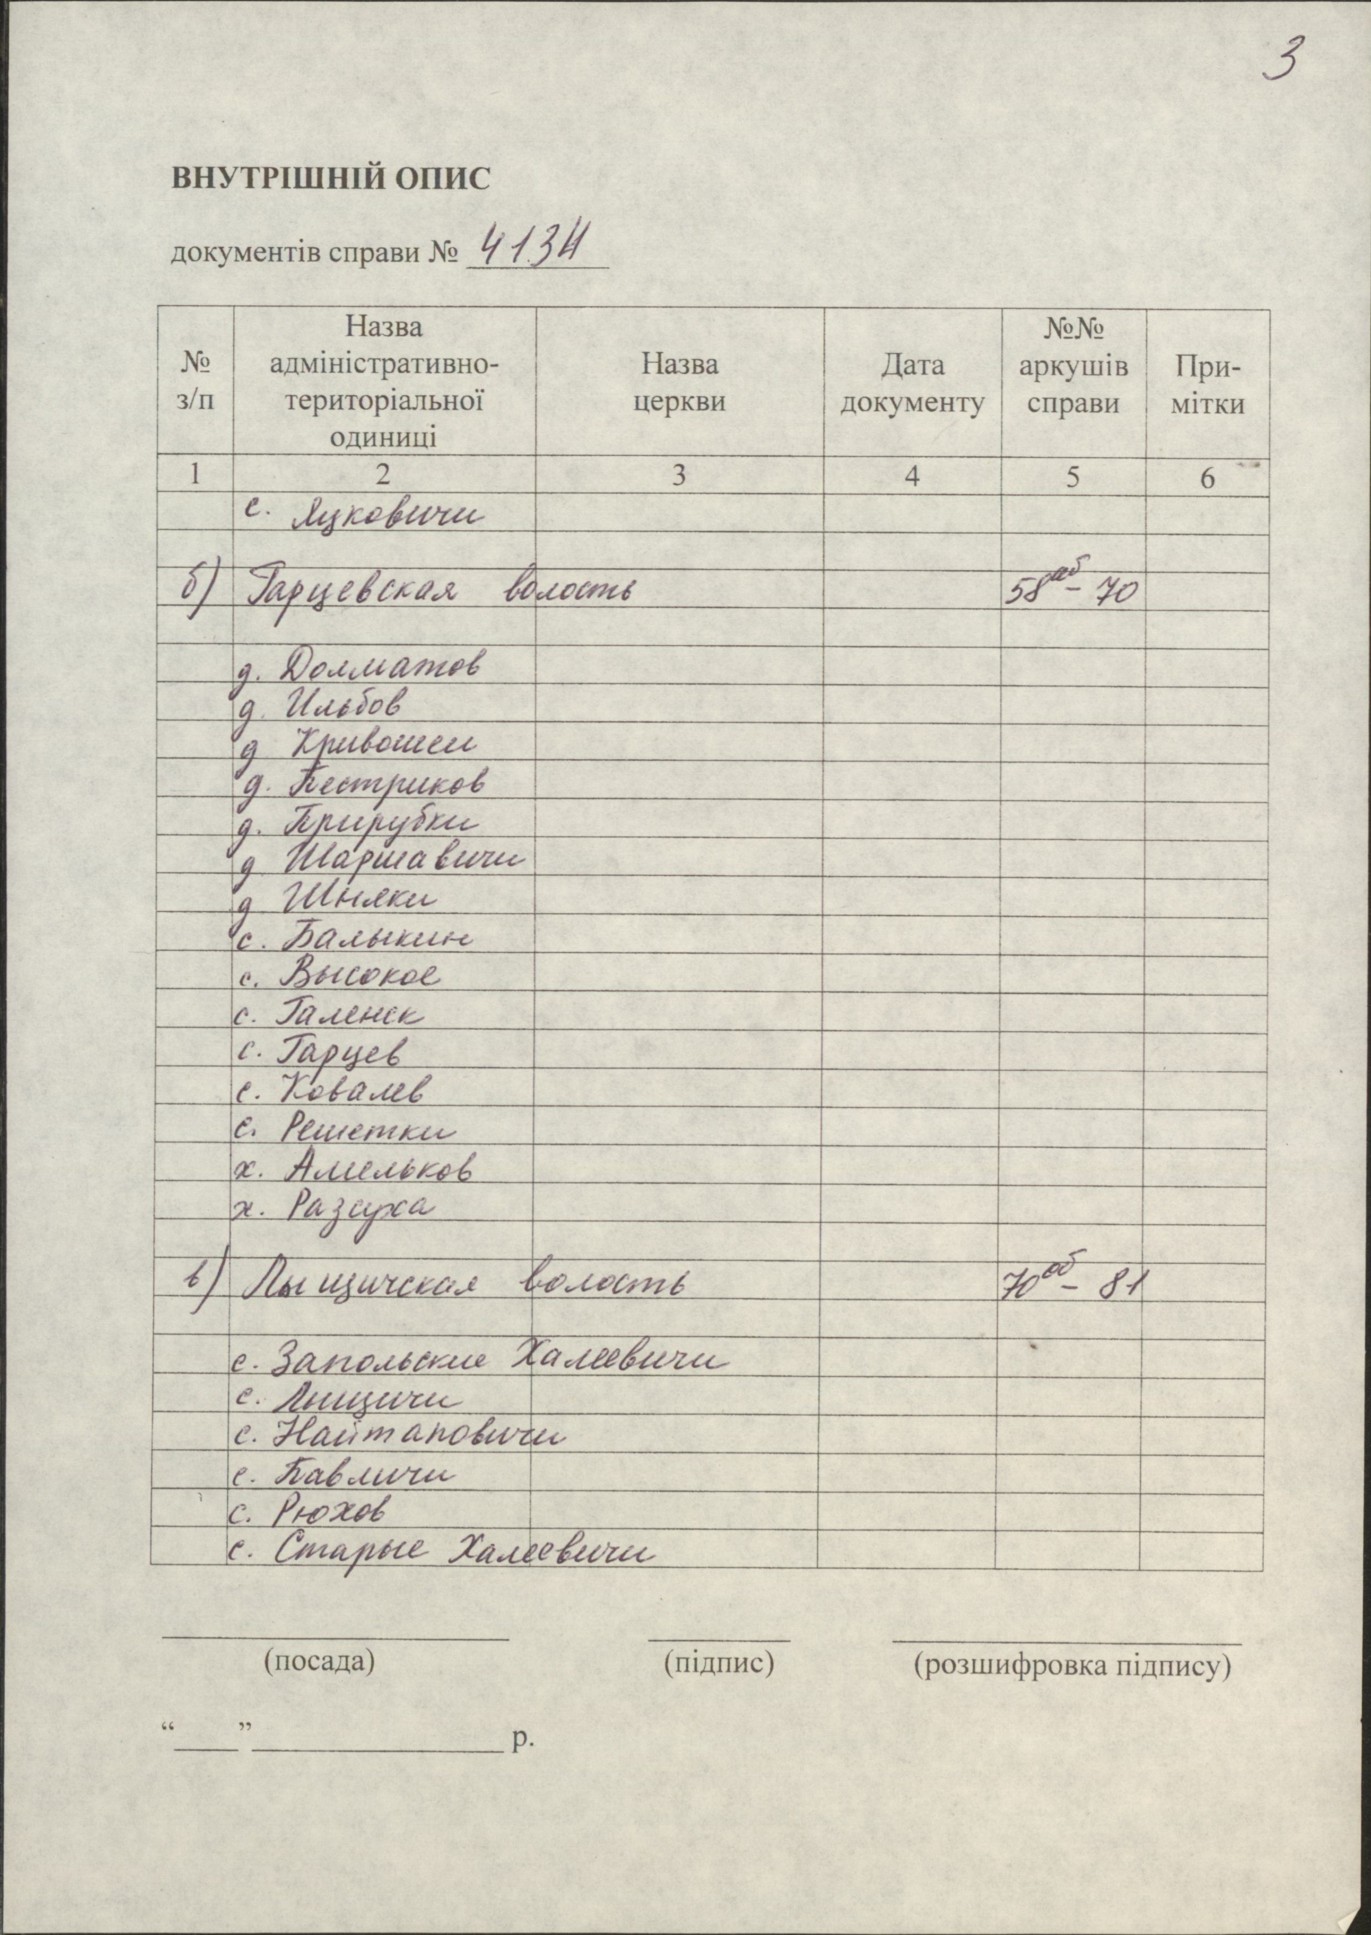 3
ВНУТРІШНІЙ ОПИС
документів справи № 4134
№ з/п
Назва адміністративно-територіальної одиниці
Назва церкви
Дата документу
№№ аркушів справи
Примітки
1 2 3 4 5 6
с. Яцковичи
б) Гарцевская волость 58об - 70
д. Долматов
д. Ильбов
д Кривошеи
д. Пестриков
д. Прирубки
д Шаршавичи
д Шняки
с. Балыкин
с. Высокое
с. Галенск
с. Гарцев
с. Ковалев
с. Решетки
х. Амельков
х. Разсуха
в) Лыщичская волость 70об - 81
с. Запольские Халеевичи
с. Лыщичи
с. Найтаповичи
с. Павличи
с. Рюхов
с. Старые Халеевичи
(посада) (підпис) (розшифровка підпису)
“____”________________ р.